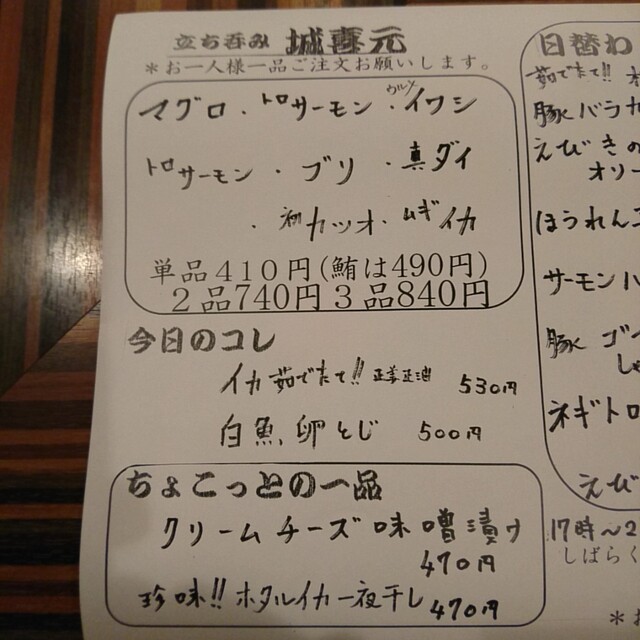 立ち呑み 城喜元
＊お一人様一品ご注文お願いします。
マグロ・トロサーモン・ウルメイワシ
トロサーモン・ブリ・真ダイ
・初カツオ・ムギイカ
単品４１０円(鮪は490円)
２品740円３品840円
今日のコレ
イカ茹でたて!! 生姜正油 530円
白魚 卵とじ 500円
ちょこっとの一品
クリームチーズ味噌漬け
470円
珍味!! ホタルイカ一夜干し 470円
日替わ
茹でたて!!
豚バラ
えびきの
オリー
ほうれん
サーモンハ
豚 ゴー
しゃ
ネギトロ
えび
17時～2
しばらく
＊お